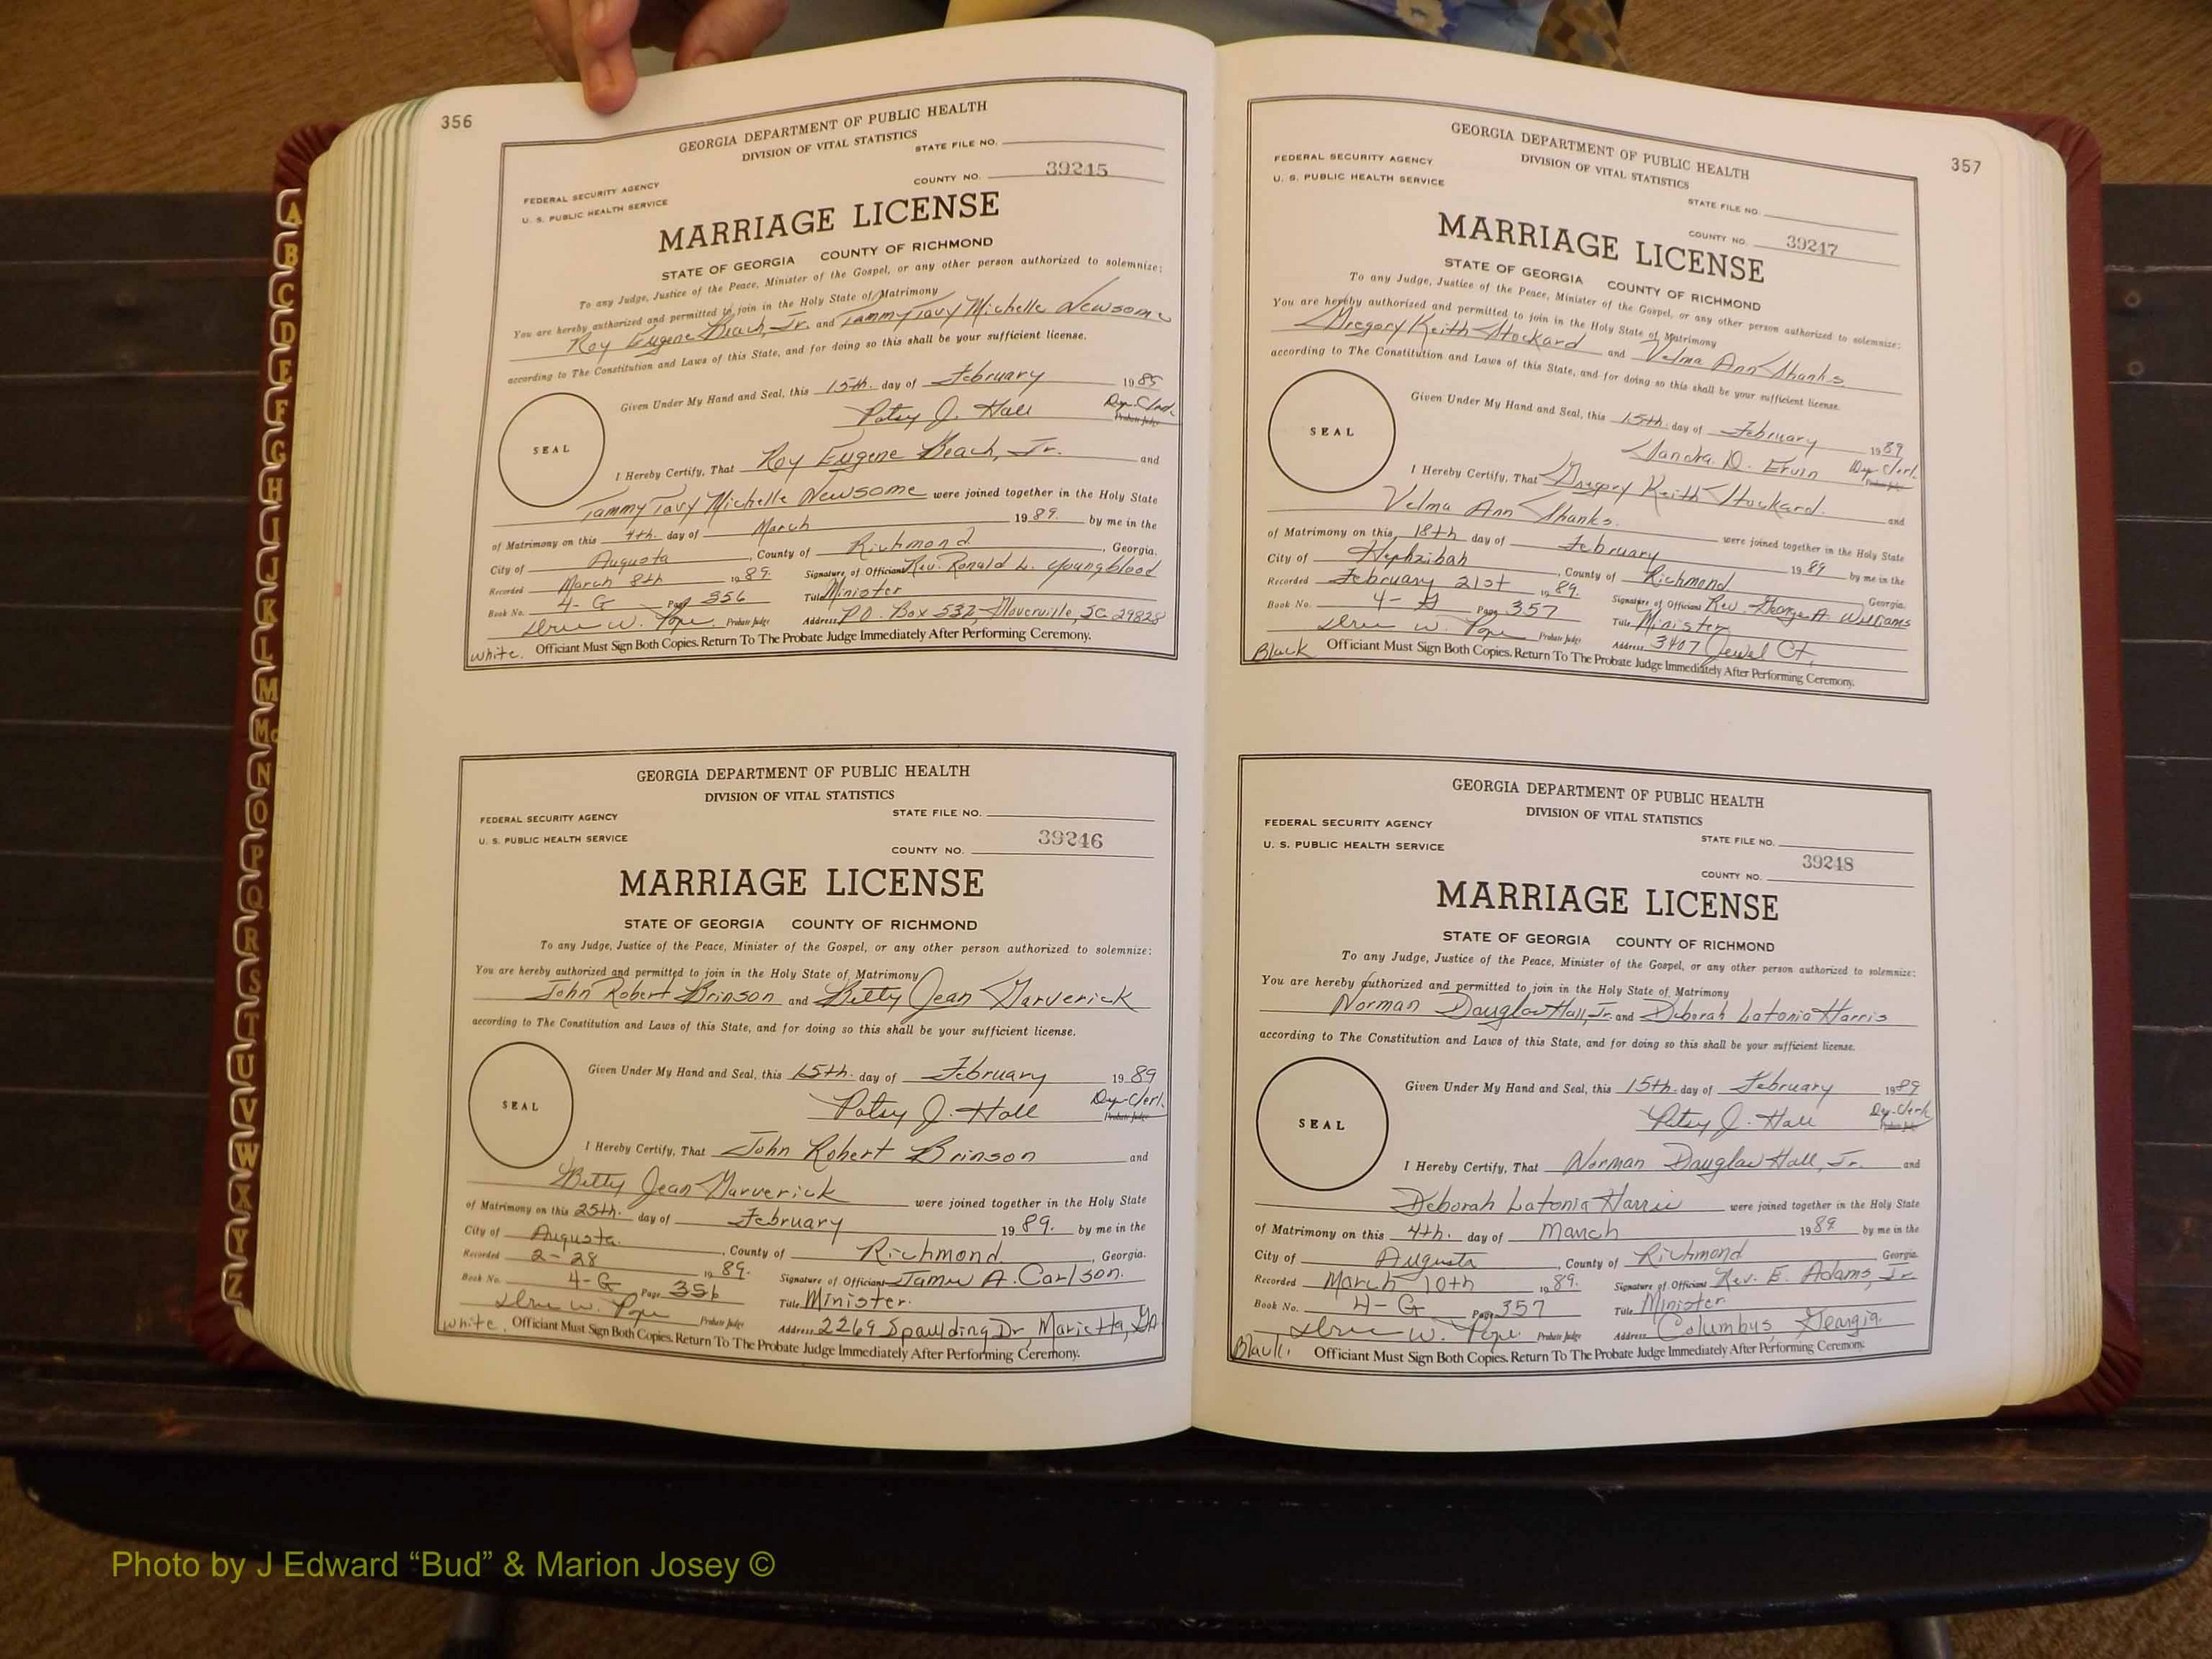 356
GEORGIA DEPARTMENT OF PUBLIC HEALTH
DIVISION OF VITAL STATISTICS
STATE FILE NO.
FEDERAL SECURITY AGENCY
COUNTY NO. 39245
U. S. PUBLIC HEALTH SERVICE
MARRIAGE LICENSE
STATE OF GEORGIA COUNTY OF RICHMOND
To any Judge, Justice of the Peace, Minister of the Gospel, or any other person authorized to solemnize:
You are hereby authorized and permitted to join in the Holy State of Matrimony
Roy Eugene Beach, Jr. and Tammy Tavy Michelle Newsome
according to The Constitution and Laws of this State, and for doing so this shall be your sufficient license.
Given Under My Hand and Seal, this 15th. day of February 1989
Patsy J. Hall Dep. Clerk
Probate Judge
SEAL
I Hereby Certify, That Roy Eugene Beach, Jr. and
Tammy Tavy Michelle Newsome were joined together in the Holy State
of Matrimony on this 4th. day of March 1989. by me in the
City of Augusta, County of Richmond, Georgia.
Recorded March 8th 1989. Signature of Officiant Rev. Ronald L. Youngblood
Book No. 4-G Page 356 Title Minister
Probate Judge Address P.O. Box 532, Gloverville, SC 29828
White. Officiant Must Sign Both Copies. Return To The Probate Judge Immediately After Performing Ceremony.
GEORGIA DEPARTMENT OF PUBLIC HEALTH
DIVISION OF VITAL STATISTICS
FEDERAL SECURITY AGENCY STATE FILE NO.
U. S. PUBLIC HEALTH SERVICE
COUNTY NO. 39246
MARRIAGE LICENSE
STATE OF GEORGIA COUNTY OF RICHMOND
To any Judge, Justice of the Peace, Minister of the Gospel, or any other person authorized to solemnize:
You are hereby authorized and permitted to join in the Holy State of Matrimony
John Robert Brinson and Betty Jean Garverick
according to The Constitution and Laws of this State, and for doing so this shall be your sufficient license.
Given Under My Hand and Seal, this 15th. day of February 1989
Patsy J. Hall Dep. Clerk.
Probate Judge
SEAL
I Hereby Certify, That John Robert Brinson and
Betty Jean Garverick were joined together in the Holy State
of Matrimony on this 25th. day of February 1989. by me in the
City of Augusta., County of Richmond, Georgia.
Recorded 2-28 1989. Signature of Officiant James A. Carlson.
Book No. 4-G Page 356 Title Minister.
Probate Judge Address 2269 Spaulding Dr, Marietta, GA.
White. Officiant Must Sign Both Copies. Return To The Probate Judge Immediately After Performing Ceremony.
357
GEORGIA DEPARTMENT OF PUBLIC HEALTH
DIVISION OF VITAL STATISTICS
FEDERAL SECURITY AGENCY
U. S. PUBLIC HEALTH SERVICE
STATE FILE NO.
COUNTY NO. 39247
MARRIAGE LICENSE
STATE OF GEORGIA COUNTY OF RICHMOND
To any Judge, Justice of the Peace, Minister of the Gospel, or any other person authorized to solemnize:
You are hereby authorized and permitted to join in the Holy State of Matrimony
Gregory Keith Stockard and Velma Ann Shanks
according to The Constitution and Laws of this State, and for doing so this shall be your sufficient license.
Given Under My Hand and Seal, this 15th. day of February 1989
Sandra D. Ervin Dep. Clerk.
Probate Judge
SEAL
I Hereby Certify, That Gregory Keith Stockard. and
Velma Ann Shanks. were joined together in the Holy State
of Matrimony on this 18th day of February 1989 by me in the
City of Hephzibah, County of Richmond Georgia.
Recorded February 21st 1989. Signature of Officiant Rev. George A. Williams
Book No. 4-G Page 357 Title Minister
Probate Judge Address 3407 Jewel Ct.
Black Officiant Must Sign Both Copies. Return To The Probate Judge Immediately After Performing Ceremony.
GEORGIA DEPARTMENT OF PUBLIC HEALTH
DIVISION OF VITAL STATISTICS
FEDERAL SECURITY AGENCY
U. S. PUBLIC HEALTH SERVICE
STATE FILE NO.
COUNTY NO. 39248
MARRIAGE LICENSE
STATE OF GEORGIA COUNTY OF RICHMOND
To any Judge, Justice of the Peace, Minister of the Gospel, or any other person authorized to solemnize:
You are hereby authorized and permitted to join in the Holy State of Matrimony
Norman Douglas Hall, Jr. and Deborah Latonia Harris
according to The Constitution and Laws of this State, and for doing so this shall be your sufficient license.
Given Under My Hand and Seal, this 15th. day of February 1989
Patsy J. Hall Dep. Clerk
Probate Judge
SEAL
I Hereby Certify, That Norman Douglas Hall, Jr. and
Deborah Latonia Harris were joined together in the Holy State
of Matrimony on this 4th. day of March 1989 by me in the
City of Augusta, County of Richmond Georgia.
Recorded March 10th 1989. Signature of Officiant Rev. E. Adams, Jr.
Book No. 4-G Page 357 Title Minister
Probate Judge Address Columbus, Georgia.
Black. Officiant Must Sign Both Copies. Return To The Probate Judge Immediately After Performing Ceremony.
A
B
C
D
E
F
G
H
I
J
K
L
M
Mc
N
O
P
Q
R
S
T
U
V
W
X
Y
Z
Photo by J Edward “Bud” & Marion Josey ©